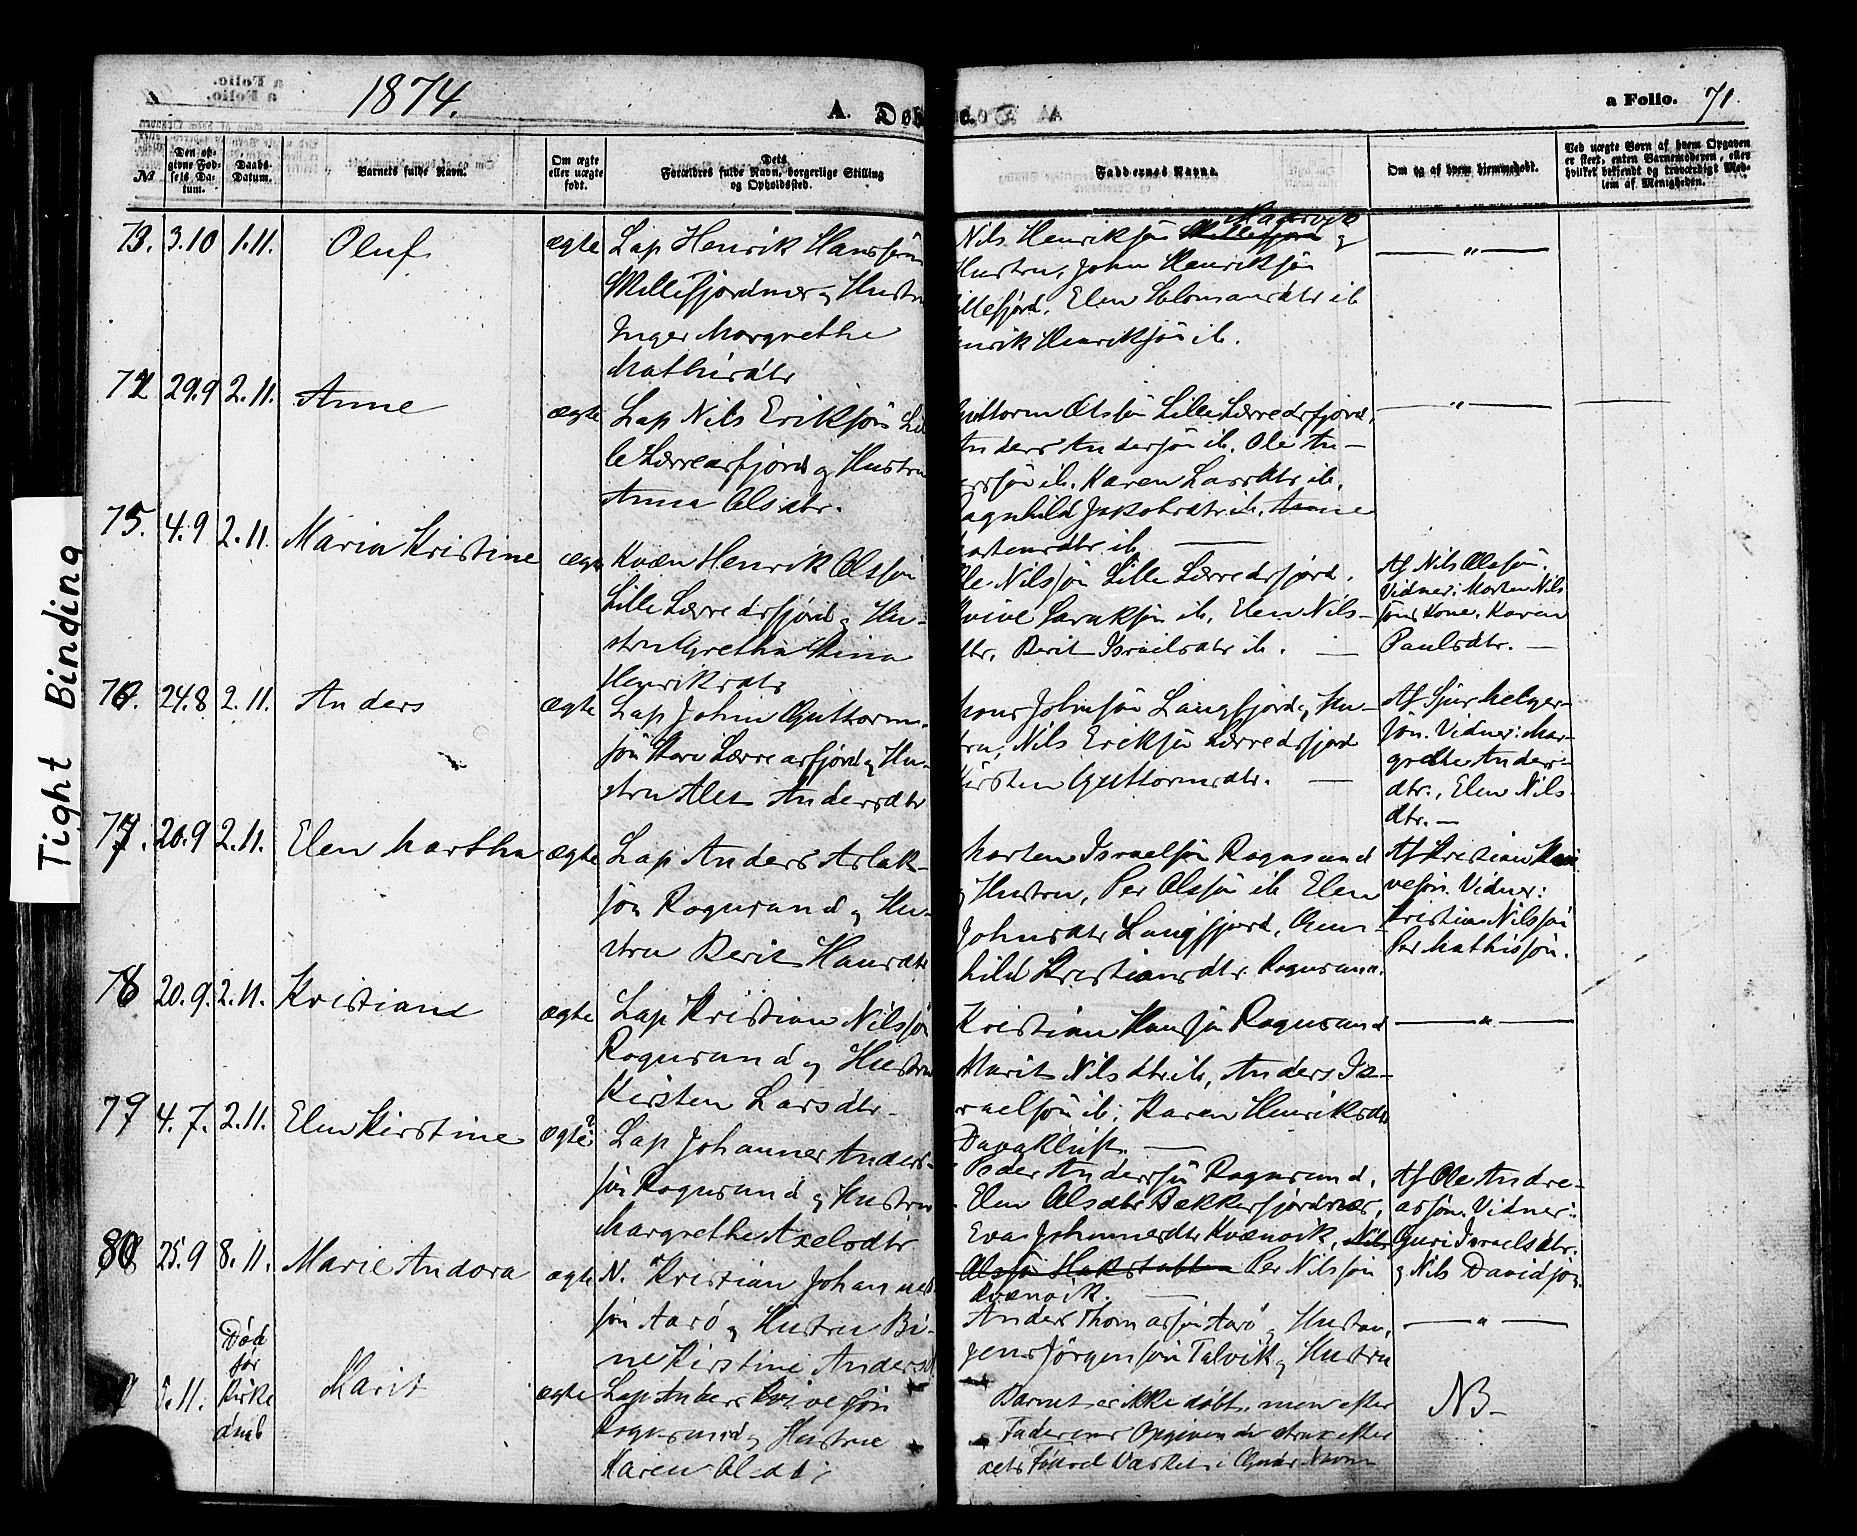 Tight Binding
1874.
A. Døb
e.
a Folio. 71.
№
Den op-
givne Fød-
sels Da-
tum.
Daabs-
Datum.
Barnets fulde Navn.
Om ægte
eller uægte
født.
Dets
Forældres fulde Navn, borgerlige Stilling
og Opholdssted.
Faddernes Navne.
Om og af hvem hjemmedøbt.
Ved uægte Børn af hvem Opgaven
er skeet, enten Barnemoderen, eller
hvilket bekjendt og troværdigt Med-
lem af Menigheden.
73. 3.10 1.11. Oluf ægte
Lap Henrik Hanssøn
Millefjordnær og Hustru
Inger Margrethe
Mathisdtr
Nils Henriksøn
Hustru, John Henriksøn
illefjord, Elen Salomansdtr ib
enrik Henriksøn ib.
— " —
74 29.9 2.11. Anne ægte
Lap Nils Eriksøn Lil
le Lerredsfjord og Hustru
Anna Olsdtr.
Guttorm Olssøn Lille Lerredsfjord,
Anders Andersøn ib. Ole An—
erssøn ib. Karen Larsdtr ib.
Ragnhild Jakobsdtr ib. Anne
ortensdtr ib —
— " —
75. 4.9 2.11. Maria Kristine ægte
Kvæn Henrik Olssøn
Lille Lerredsfjord og Hu-
stru Grethe Stina
Henriksdtr
Ole Nilssøn Lille Lerredsfjord,
Kvive Sarakssøn ib, Elen Nils-
dtr, Berit Israelsdtr ib. —
Af Nils Olesøn.
Vidner: Morten Nils
søns Kone, Karen
Paulsdtr. —
76. 24.8 2.11. Anders ægte
Lap John Guttorm-
søn Store Lerredsfjord og Hu-
stru Alet Andersdtr
Mons Johnsøn Langfjord og Hu-
stru, Nils Eriksøn Lerredsfjord
Kirsten Guttormsdtr. —
Af Sjur Helger-
søn. Vidner: Mar-
grethe Anders-
dtr., Elen Nils
dtr. —
77. 20.9 2.11. Elen Martha ægte
Lap Anders Aslak-
søn Rognsund og Hu-
stru Berit Hansdtr
Morten Israelsøn Rognsund
og Hustru, Per Olssøn ib Elen
Johnsdtr Langfjord, Gun-
hild Kristiansdtr Rognsund.
Af Kristian
vesøn. Vidner:
Kristian Nilssøn
Per Mathissøn.
78 20.9. 2.11. Kristiane ægte
Lap Kristian Nilssøn
Rognsund og Hustru
Kirsten Larsdtr.
Kristian Hanssøn Rognsund
Marit Nilsdtr ib, Anders Is-
raelsøn ib, Karen Henriksdtr
— " —
79 4.7. 2.11. Elen Kirstine ægte?
Lap Johannes Anders-
søn Rognsund og Hustru
Margrethe Axelsdtr
Peder Anderssøn Rognsund,
Elen Olsdtr Bekkerfjordnær,
Eva Johannesdtr Kvænvik, Nils
Olssøn Hakstabben Per Nilssøn
Kvænvik. —
Af Ole Andre-
assøn. Vidner:
Guri Israelsdtr.
og Nils Davidsøn.
80 25.9 8.11. Marie Andora ægte
N. Kristian Johannes
søn Aarø og Hustru Bi-
ne Kirstine Andersd
Anders Thomassøn Aarø og Hustru,
Jens Jørgensøn Talvik og Hustru
— " —
5.11.
Død
før
Kirke
daab
Marit ægte
Lap Anders Kvivesøn
Rognsund og Hustru
Karen Olsdtr
Barnet er ikke døbt, men efter
Faderens Opgivende strax efter
dets Fødsel i Guds Navn
NB.